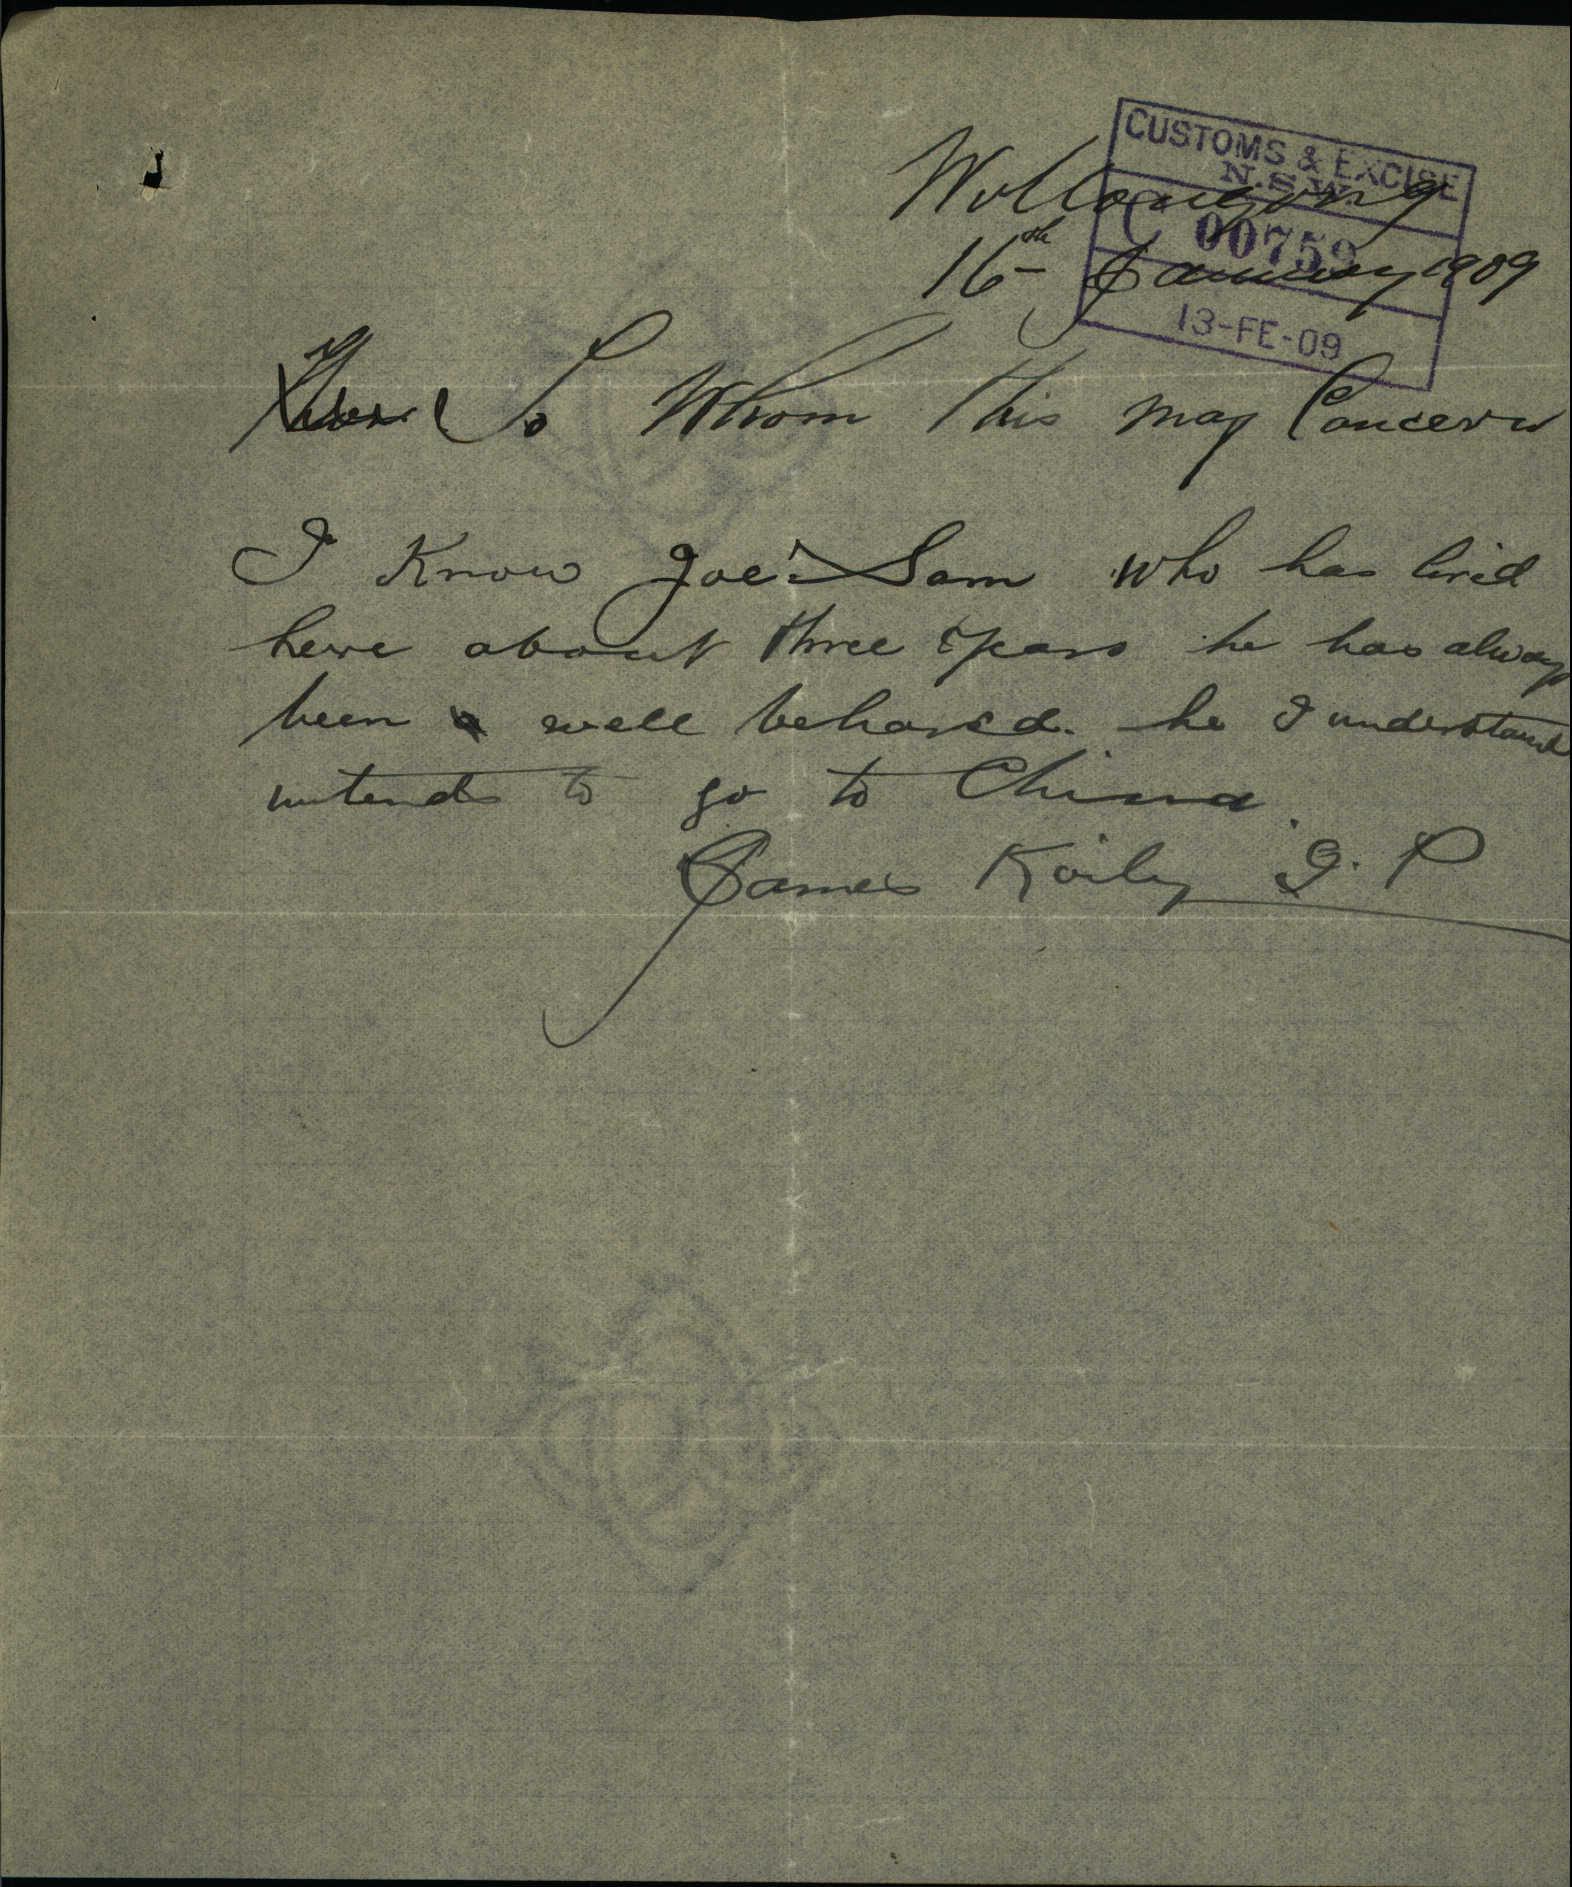 CUSTOMS & EXCISE
N.S.W.
C 00759
13-FE-09
Wollongong
16th January 1909
To Whom This may Concern
I Know Joe Sam who has livid
here about three years he has always
been well behaved. he I understand
intends to go to China.
James Kiely J. P